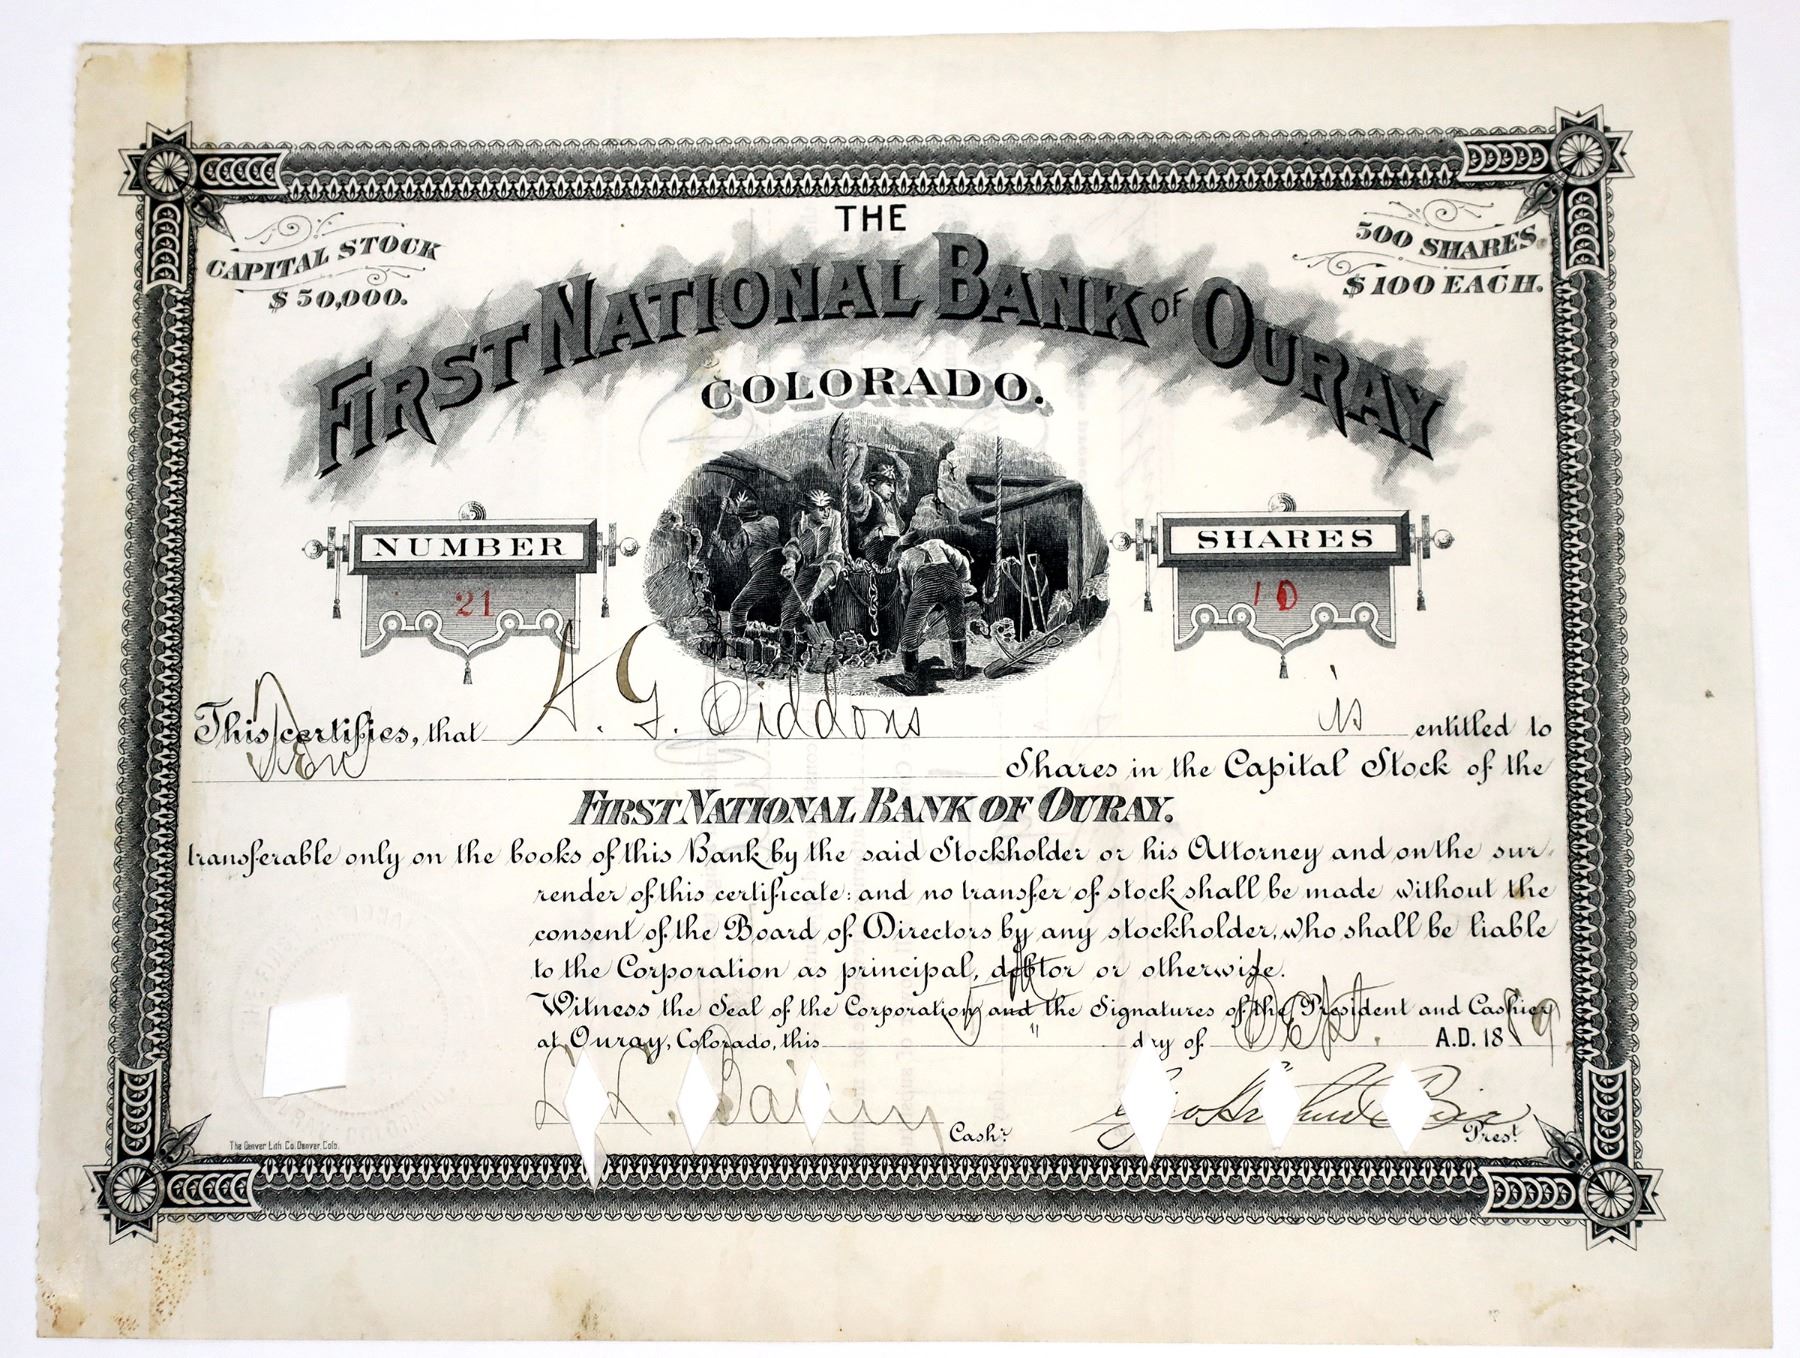 THE
CAPITAL STOCK
$50,000.
500 SHARES
$100 EACH.
FIRST NATIONAL BANK OF OURAY
COLORADO.
NUMBER
21
SHARES
10
This certifies, that A. G. Siddons is entitled to
Ten Shares in the Capital Stock of the
FIRST NATIONAL BANK OF OURAY.
transferable only on the books of this Bank by the said Stockholder or his Attorney and on the sur-
render of this certificate: and no transfer of stock shall be made without the
consent of the Board of Directors by any stockholder, who shall be liable
to the Corporation as principal, debtor or otherwise.
Witness the Seal of the Corporation and the Signatures of the President and Cashier
at Ouray, Colorado, this day of Sept. A.D. 1889
Cashr.
Geo Arthur Rice
Prest.
The Denver Lith Co. Denver, Colo.